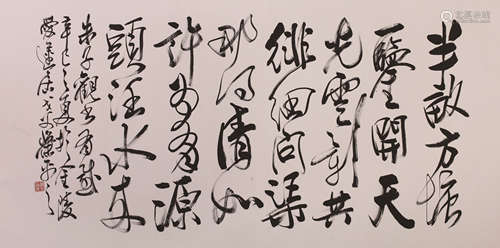 半畝方塘
一鑒開天
光雲影共
徘徊問渠
那得清如
許為有源
頭活水來
朱子觀書有感
辛巳之夏於金陵